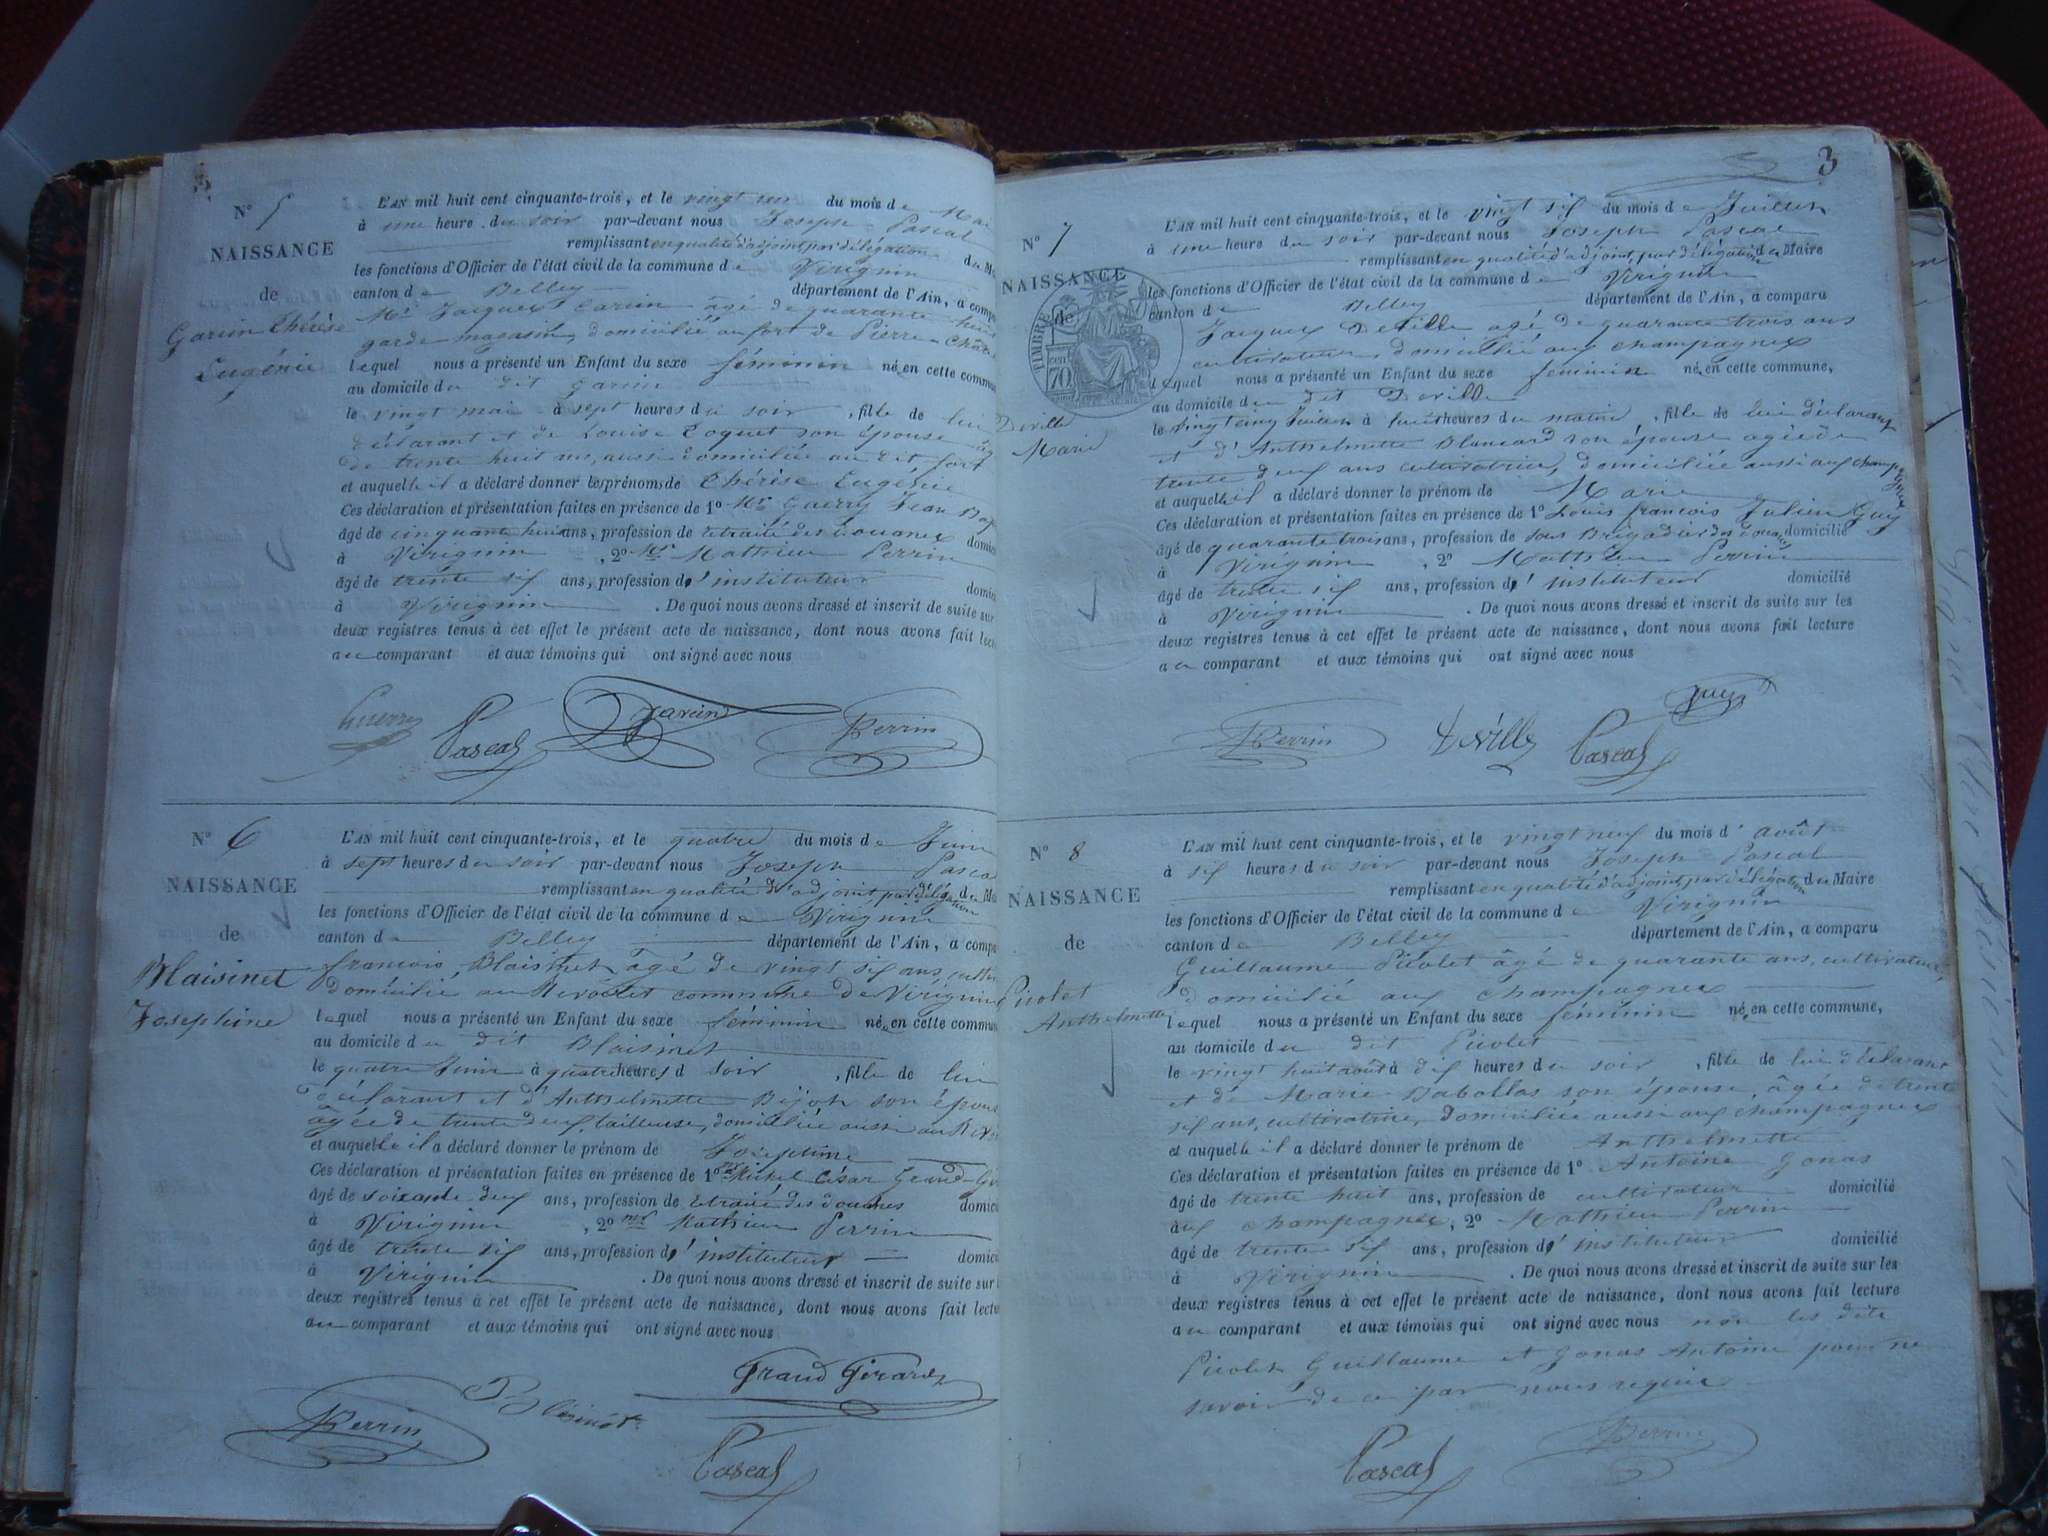 N° 5
NAISSANCE
de
Garin Thérèse
Eugénie
L'AN mil huit cent cinquante-trois, et le vingt un du mois de Mai
à une heure du soir par-devant nous Joseph Pascal
remplissant en qualité d'adjoint, par délégation du M
les fonctions d'Officier de l'état civil de la commune de Virignin
canton de Belley département de l'Ain, a compa
Mr Jacques Garin âgé de quarante huit
garde magasin, domicilié au fort de Pierre Châtel
lequel nous a présenté un Enfant du sexe féminin née en cette commun
au domicile du dit Garin
le vingt mai à sept heures du soir, fille de lui
déclarant et de Louise son épouse âg
de trente huit ans, aussi domiciliée au dit fort
et auquelle il a déclaré donner les prénoms de Thérèse Eugénie
Ces déclaration et présentation faites en présence de 1° Mr Guerry Jean Bap
âgé de cinquante huit ans, profession de retraité des Douanes domici
à Virignin, 2° Mr Mathieu Perrin
âgé de trente six ans, profession d'instituteur domici
à Virignin. De quoi nous avons dressé et inscrit de suite sur
deux registres tenus à cet effet le présent acte de naissance, dont nous avons fait lect
au comparant et aux témoins qui ont signé avec nous
Guerry Pascal Garin Perrin
N° 6
NAISSANCE
de
Blaisinet
Josephine
L'AN mil huit cent cinquante-trois, et le quatre du mois de Juin
à sept heures du soir par-devant nous Joseph Pascal
remplissant en qualité d'adjoint, par délégation du Mai
les fonctions d'Officier de l'état civil de la commune de Virignin
canton de Belley département de l'Ain, a compa
françois Blaisinet, âgé de vingt six ans, cultiv
domicilié au commune de Virignin
lequel nous a présenté un Enfant du sexe féminin née en cette commun
au domicile du dit Blaisinet
le quatre Juin à quatre heures d soir, fille de lui
déclarant et d'Anthelmette son épouse
âgée de trente deux tailleuse, domiciliée aussi au
et auquelle il a déclaré donner le prénom de Josephine
Ces déclaration et présentation faites en présence de 1° Mr Michel César Grand-Gi
âgé de soixante deux ans, profession de retraité des douanes domici
à Virignin, 2° Mr Mathieu Perrin
âgé de trente six ans, profession d'instituteur domici
à Virignin. De quoi nous avons dressé et inscrit de suite sur l
deux registres tenus à cet effet le présent acte de naissance, dont nous avons fait lectu
au comparant et aux témoins qui ont signé avec nous
Grand Girard
Perrin
Pascal
3
N° 7
NAISSANCE
de
TIMBRE
70
Deville
Marie
L'AN mil huit cent cinquante-trois, et le vingt six du mois de Juillet
à une heure du soir par-devant nous Joseph Pascal
remplissant en qualité d'adjoint, par délégation du Maire
les fonctions d'Officier de l'état civil de la commune de Virignin
canton de Belley département de l'Ain, a comparu
Jacques Deville âgé de quarante trois ans
cultivateur, domicilié aux champagnes
lequel nous a présenté un Enfant du sexe féminin née en cette commune,
au domicile du dit Deville
le vingt cinq Juillet à huit heures du matin, fille de lui déclarant
et d'Anthelmette Blancard son épouse agée de
trente deux ans cultivatrice, domiciliée aussi aux champagnes
et auquelle il a déclaré donner le prénom de Marie
Ces déclaration et présentation faites en présence de 1° Louis françois Julien Guy
âgé de quarante trois ans, profession de Sous Brigadier des douanes domicilié
à Virignin, 2° Mathieu Perrin
âgé de trente six ans, profession d'instituteur domicilié
à Virignin. De quoi nous avons dressé et inscrit de suite sur les
deux registres tenus à cet effet le présent acte de naissance, dont nous avons fait lecture
au comparant et aux témoins qui ont signé avec nous
Perrin Deville Pascal Guy
N° 8
NAISSANCE
de
Picolet
Anthelmette
L'AN mil huit cent cinquante-trois, et le vingt neuf du mois d'août
à six heures du soir par-devant nous Joseph Pascal
remplissant en qualité d'adjoint, par délégation du Maire
les fonctions d'Officier de l'état civil de la commune de Virignin
canton de Belley département de l'Ain, a comparu
Guillaume Picolet âgé de quarante ans, cultivateur,
domicilié aux champagnes
lequel nous a présenté un Enfant du sexe féminin née en cette commune,
au domicile du dit Picolet
le vingt huit août à dix heures du soir, fille de lui déclarant
et de Marie son épouse, âgée de trente
six ans, cultivatrice, domiciliée aussi aux champagnes
et auquelle il a déclaré donner le prénom de Anthelmette
Ces déclaration et présentation faites en présence de 1° Antoine Gonas
âgé de trente huit ans, profession de cultivateur domicilié
aux champagnes, 2° Mathieu Perrin
âgé de trente six ans, profession d'instituteur domicilié
à Virignin. De quoi nous avons dressé et inscrit de suite sur les
deux registres tenus à cet effet le présent acte de naissance, dont nous avons fait lecture
au comparant et aux témoins qui ont signé avec nous non les dits
Picolet Guillaume et Gonas Antoine pour ne
savoir de ce par nous requis
Pascal Perrin